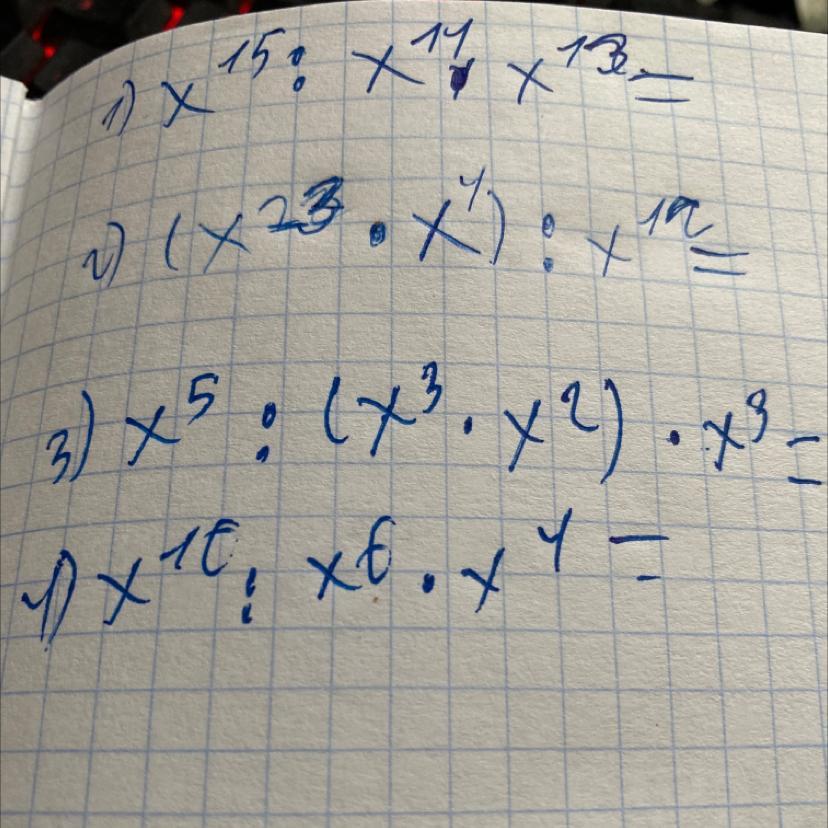 1) x¹⁵ : x¹⁴ · x¹³ =
2) (x²³ · x⁴) : x¹² =
3) x⁵ : (x³ · x²) · x³ =
4) x¹⁶ : x⁶ · x⁴ =